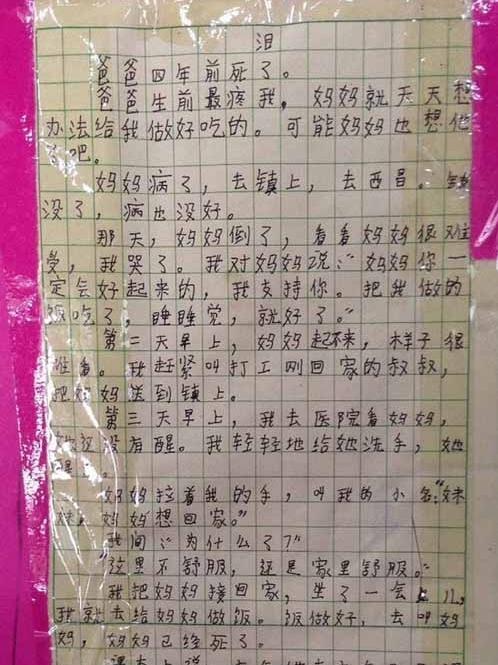 泪
爸爸四年前死了。
爸爸生前最疼我，妈妈就天天想
办法给我做好吃的。可能妈妈也想他
了吧。
妈妈病了，去镇上，去西昌。钱
没了，病也没好。
那天，妈妈倒了，看看妈妈很难
受，我哭了。我对妈妈说：“妈妈你一
定会好起来的，我支持你。把我做的
饭吃了，睡睡觉，就好了。”
第二天早上，妈妈起不来，样子很
难看。我赶紧叫打工刚回家的叔叔，
把妈妈送到镇上。
第三天早上，我去医院看妈妈，
她还没有醒。我轻轻地给她洗手，她
醒了。
妈妈拉着我的手，叫我的小名：“妹
妹，妈妈想回家。”
我问：“为什么了？”
“这里不舒服，还是家里舒服。”
我把妈妈接回家，坐了一会儿，
我就去给妈妈做饭。饭做好，去叫妈
妈，妈妈已经死了。
课本上说，